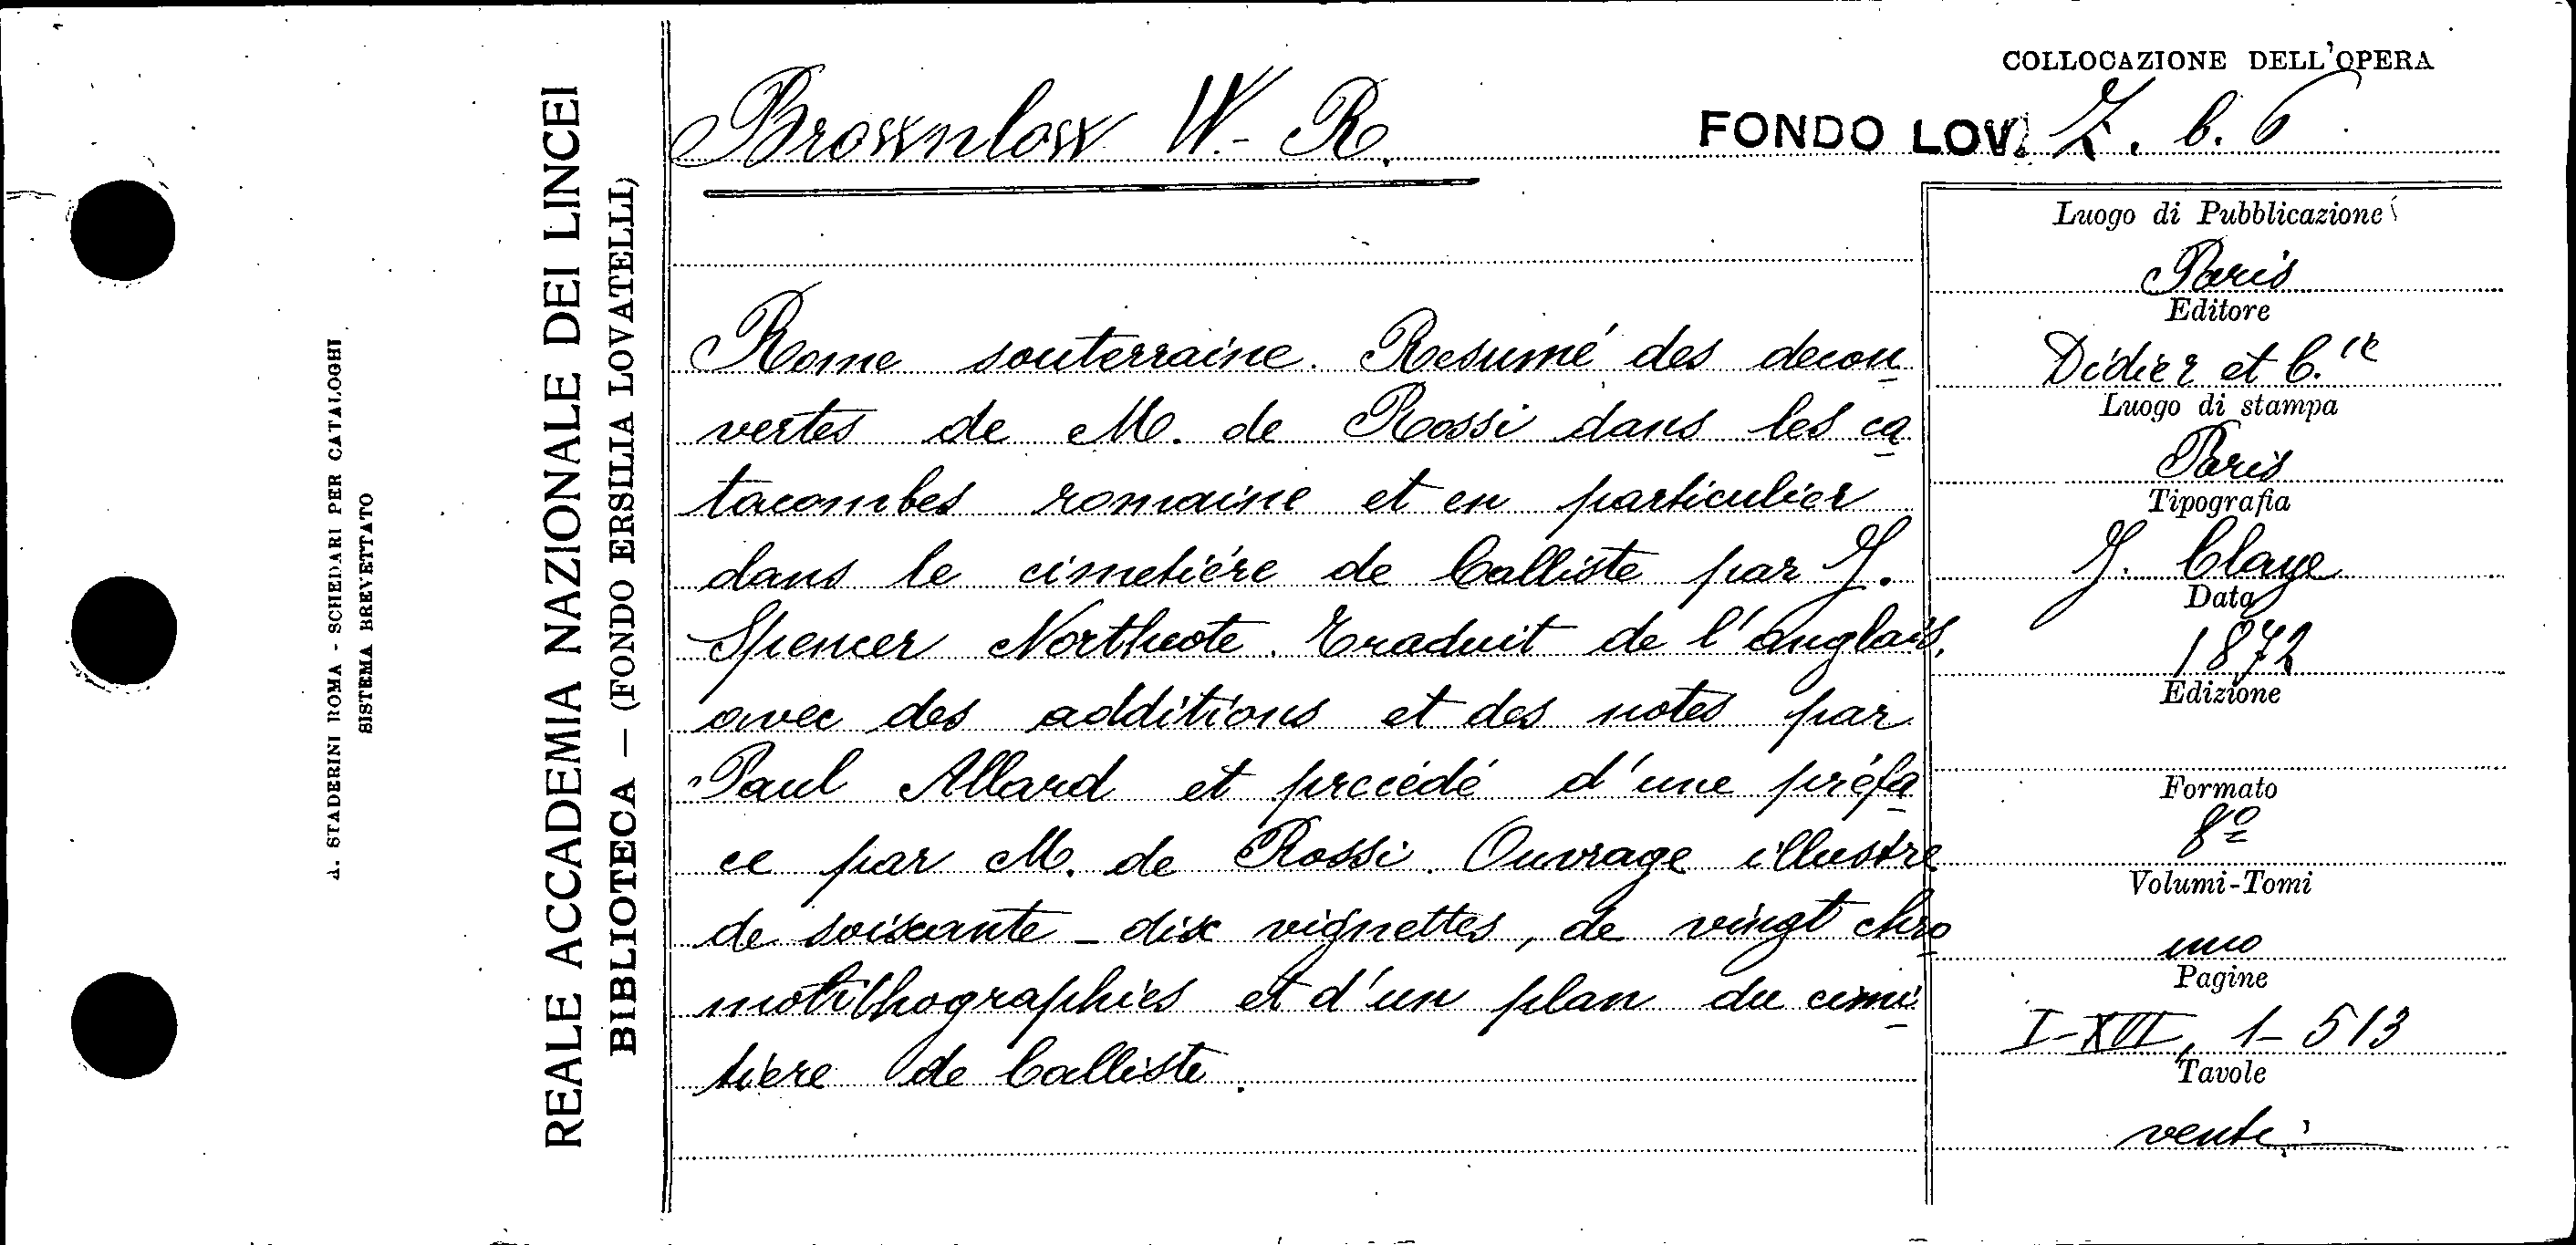 A. STADERINI ROMA - SCHEDARI PER CATALOGHI
SISTEMA BREVETTATO
REALE ACCADEMIA NAZIONALE DEI LINCEI
BIBLIOTECA — (FONDO ERSILIA LOVATELLI)
Brownlow W.- R.
COLLOCAZIONE DELL'OPERA
FONDO LOV. Z. b. 6
Rome souterraine. Resumé des decou
vertes de M. de Rossi dans les ca
tacombes romaine et en particulier
dans le cimetière de Calliste par J.
Spencer Northcote. Traduit de l'anglais,
avec des additions et des notes par
Paul Allard et precédé d'une préfa
ce par M. de Rossi. Ouvrage illustre
de soixante - dix vignettes, de vingt chro
motilhographies et d'un plan du cime
tière de Calliste.
Luogo di Pubblicazione
Paris
Editore
Didier et C.ie
Luogo di stampa
Paris
Tipografia
J. Claye
Data
1872
Edizione
Formato
8º
Volumi-Tomi
uno
Pagine
I-XVI, 1-513
Tavole
venti